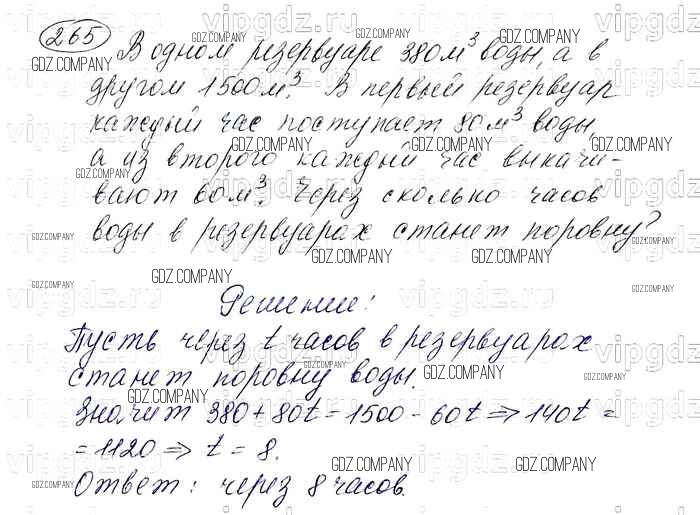 265 В одном резервуаре 380м³ воды, а в
другом 1500м³. В первый резервуар
каждый час поступает 80м³ воды,
а из второго каждый час выкачи-
вают 60м³. Через сколько часов
воды в резервуарах станет поровну?
Решение:
Пусть через t часов в резервуарах
станет поровну воды.
Значит 380 + 80t = 1500 - 60t ⇒ 140t =
= 1120 ⇒ t = 8.
Ответ: через 8 часов.
GDZ.COMPANY
vipgdz.ru